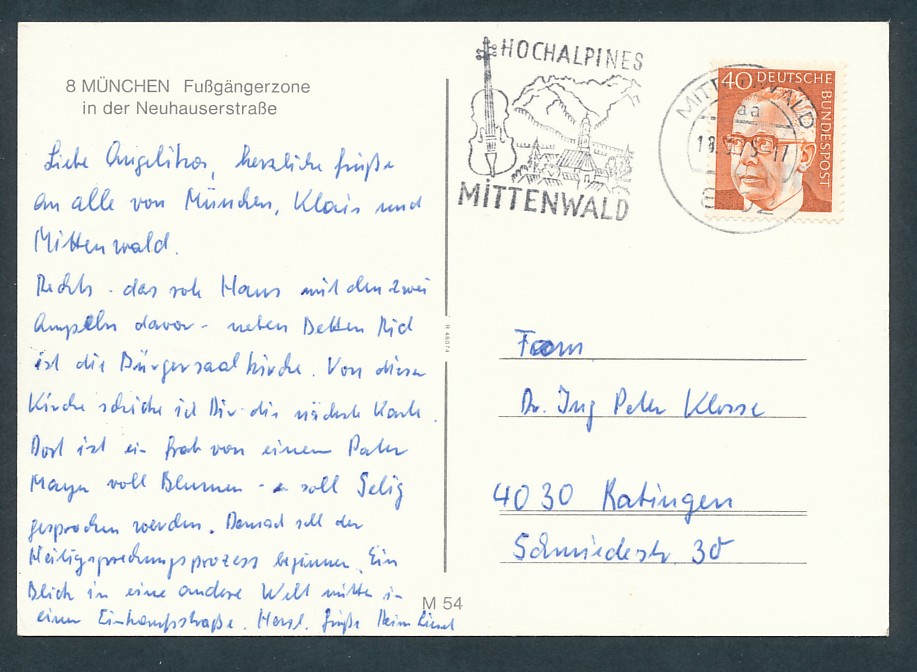 8 MÜNCHEN Fußgängerzone
in der Neuhauserstraße
Liebe Angelika, herzliche Grüße
an alle von München, Klais und
Mittenwald.
Rechts - das rote Haus mit den zwei
Ampeln davor - neben Betten Rid
ist die Bürgersaalkirche. Von dieser
Kirche schicke ich Dir die nächste Karte.
Dort ist ein Grab von einem Pater
Mayer voll Blumen - er soll Selig
gesprochen werden. Danach soll der
Heiligsprechungsprozess beginnen. Ein
Blick in eine andere Welt mitten in
einer Einkaufsstraße. Herzl. Grüße Deine Liesel
M 54
HOCHALPINES
MITTENWALD
MITTENWALD
aa
40 DEUTSCHE
BUNDESPOST
Frau
Dr. Ing Peter Klosse
4030 Ratingen
Schmiedestr. 30